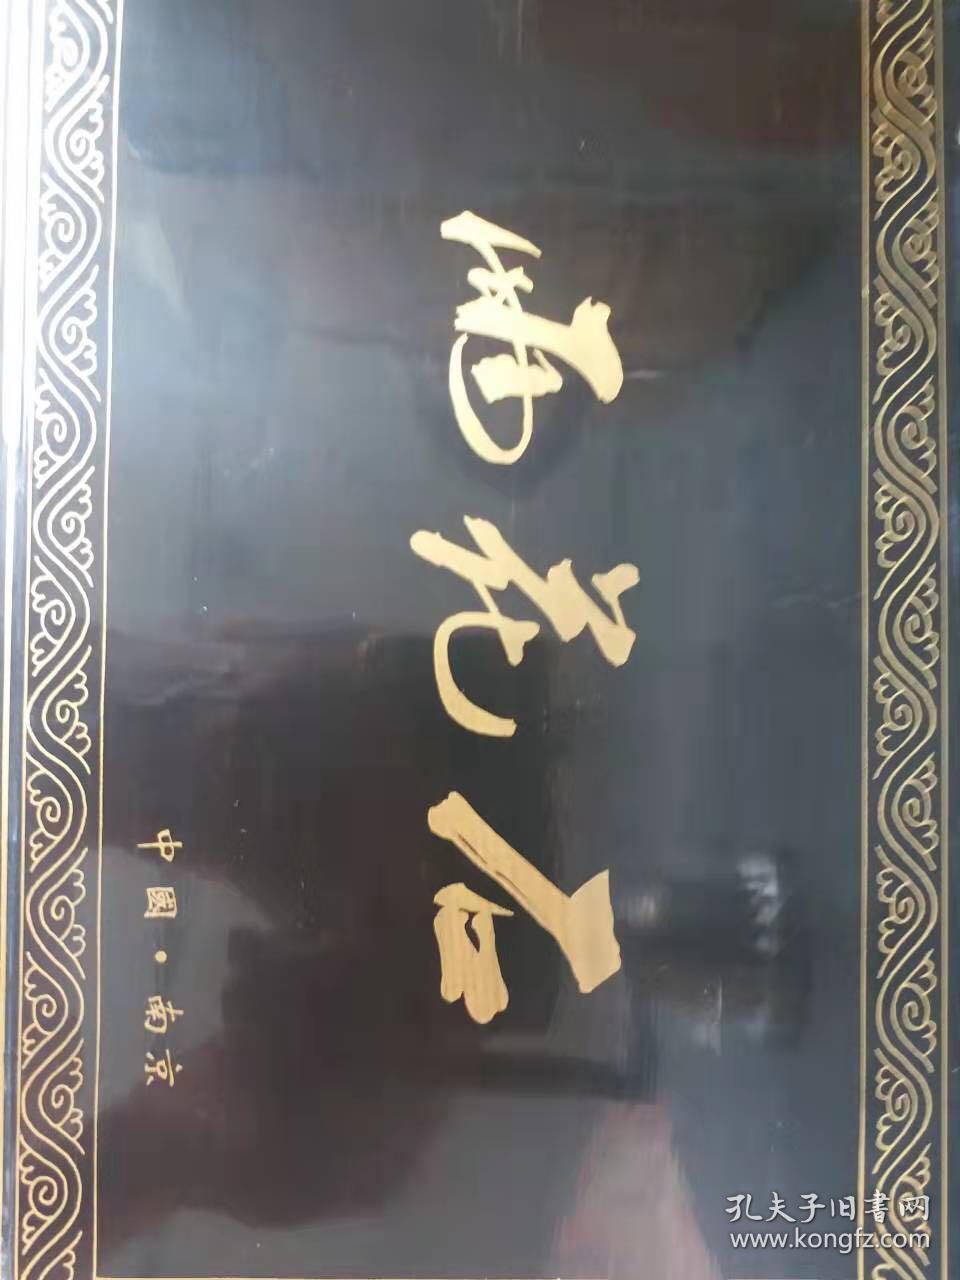 雨花石
中國·南京
孔夫子旧書网
www.kongfz.com